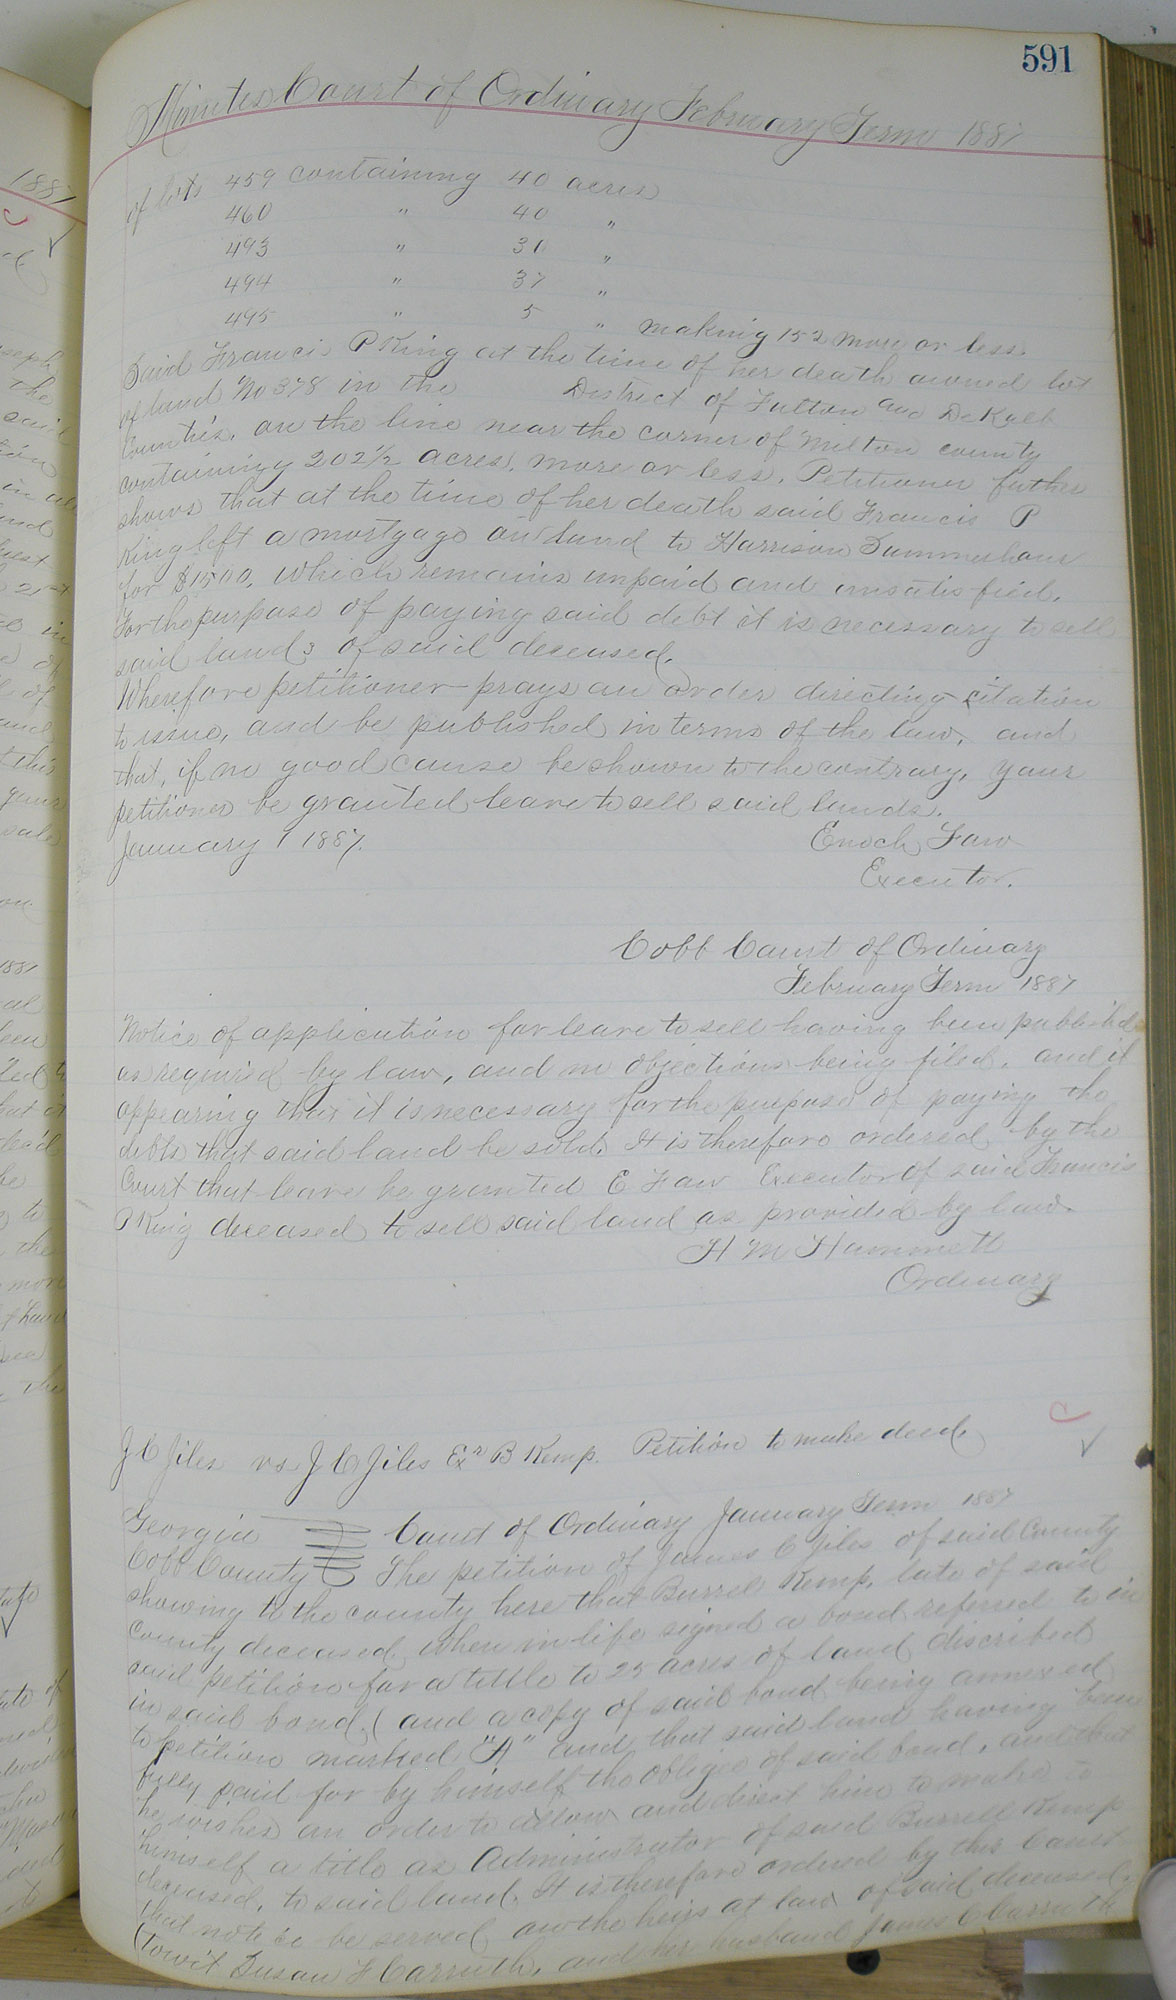 591
Minutes Court of Ordinary February Term 1887
of lots 459 containing 40 acres
460 " 40 "
493 " 30 "
494 " 37 "
495 " 5 " making 152 more or less.
Said Francis P King at the time of her death owned lot
of land No 378 in the District of Fulton and DeKalb
Counties, on the line near the corner of Milton county
containing 202 1/2 acres, more or less. Petitioner futher
shows that at the time of her death said Francis P
King left a mortgage on land to Harrison Summerhour
for $1500, which remains unpaid and unsatisfied.
For the purpose of paying said debt it is necessary to sell
said lands of said deceased.
Wherefore petitioner prays an order directing citation
to issue, and be published in terms of the law, and
that, if no good cause be shown to the contrary, your
petitioner be granted leave to sell said lands.
January 1 1887.
Enoch Faw
Executor.
Cobb Court of Ordinary
February Term 1887
Notice of application for leave to sell having been published
as required by law, and no objections being filed, and it
appearing that it is necessary for the purpose of paying the
debts that said land be sold. It is therefore ordered by the
Court that leave be granted E Faw Executor of said Francis
P King deceased to sell said land as provided by law.
H M Hammett
Ordinary
J C Jiles vs J C Jiles Exr B Kemp. Petition to make deed
Georgia Court of Ordinary January Term 1887
Cobb County The petition of James C Jiles of said County
showing to the county here that Burrel Kemp, late of said
County deceased, when in life signed a bond referred to in
said petition for a tittle to 25 acres of land discribed
in said bond (and a copy of said bond being annexed
to petition marked "A" and that said land having been
fully paid for by himself the obligee of said bond, and that
he wishes an order to allow and direct him to make to
himself a title as Administrator of said Burrell Kemp
deceased, to said land. It is therefore ordered by this Court
that notice be served on the heirs at law of said deceased,
(towit Susan F Carruth, and her husband James C Carruth